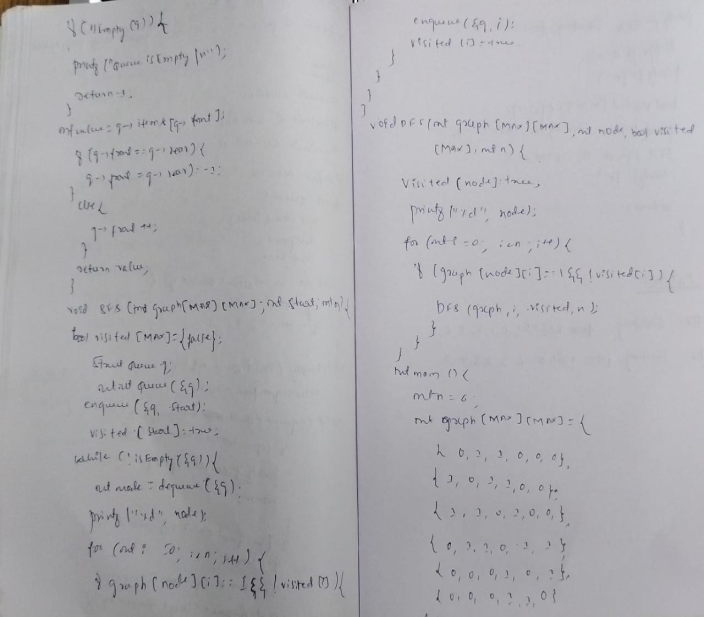 if (isEmpty (q)) {
printf ("Queue is Empty \n");
return -1;
}
int value = q-> items [q-> front];
if (q->front == q-> rear) {
q-> front = q-> rear) = -1;
}
else {
q-> front ++;
}
return value;
}
void BFS (int graph[MAX] [MAX], int start, int n) {
bool visited [MAX] = {false};
Struct queue q;
queue (&q);
enqueue (&q, start);
visited [start] = true;
while (! isEmpty (&q)) {
int node = dequeue (&q);
printf ("%d", node);
for (int i = 0; i<n; i++) {
if graph [node] [i] == 1 && ! visited [i]) {
enqueue (&q, i);
visited [i] = true
}
}
}
}
void DFS (int graph [MAX] [MAX], int node, bool visited
[MAX], int n) {
visited [node] = true;
printf ("%d", node);
for (int i = 0; i<n; i++) {
if (graph [node] [i] == 1 && ! visited [i]) {
DFS (graph, i, visited, n);
}
}
}
int main () {
int n = 6;
int graph [MAX] [MAX] = {
{ 0, 1, 1, 0, 0, 0},
{ 1, 0, 1, 1, 0, 0},
{ 1, 1, 0, 1, 0, 0},
{ 0, 1, 1, 0, 1, 1}
{ 0, 0, 0, 1, 0, 1},
{ 0, 0, 0, 1, 1, 0}